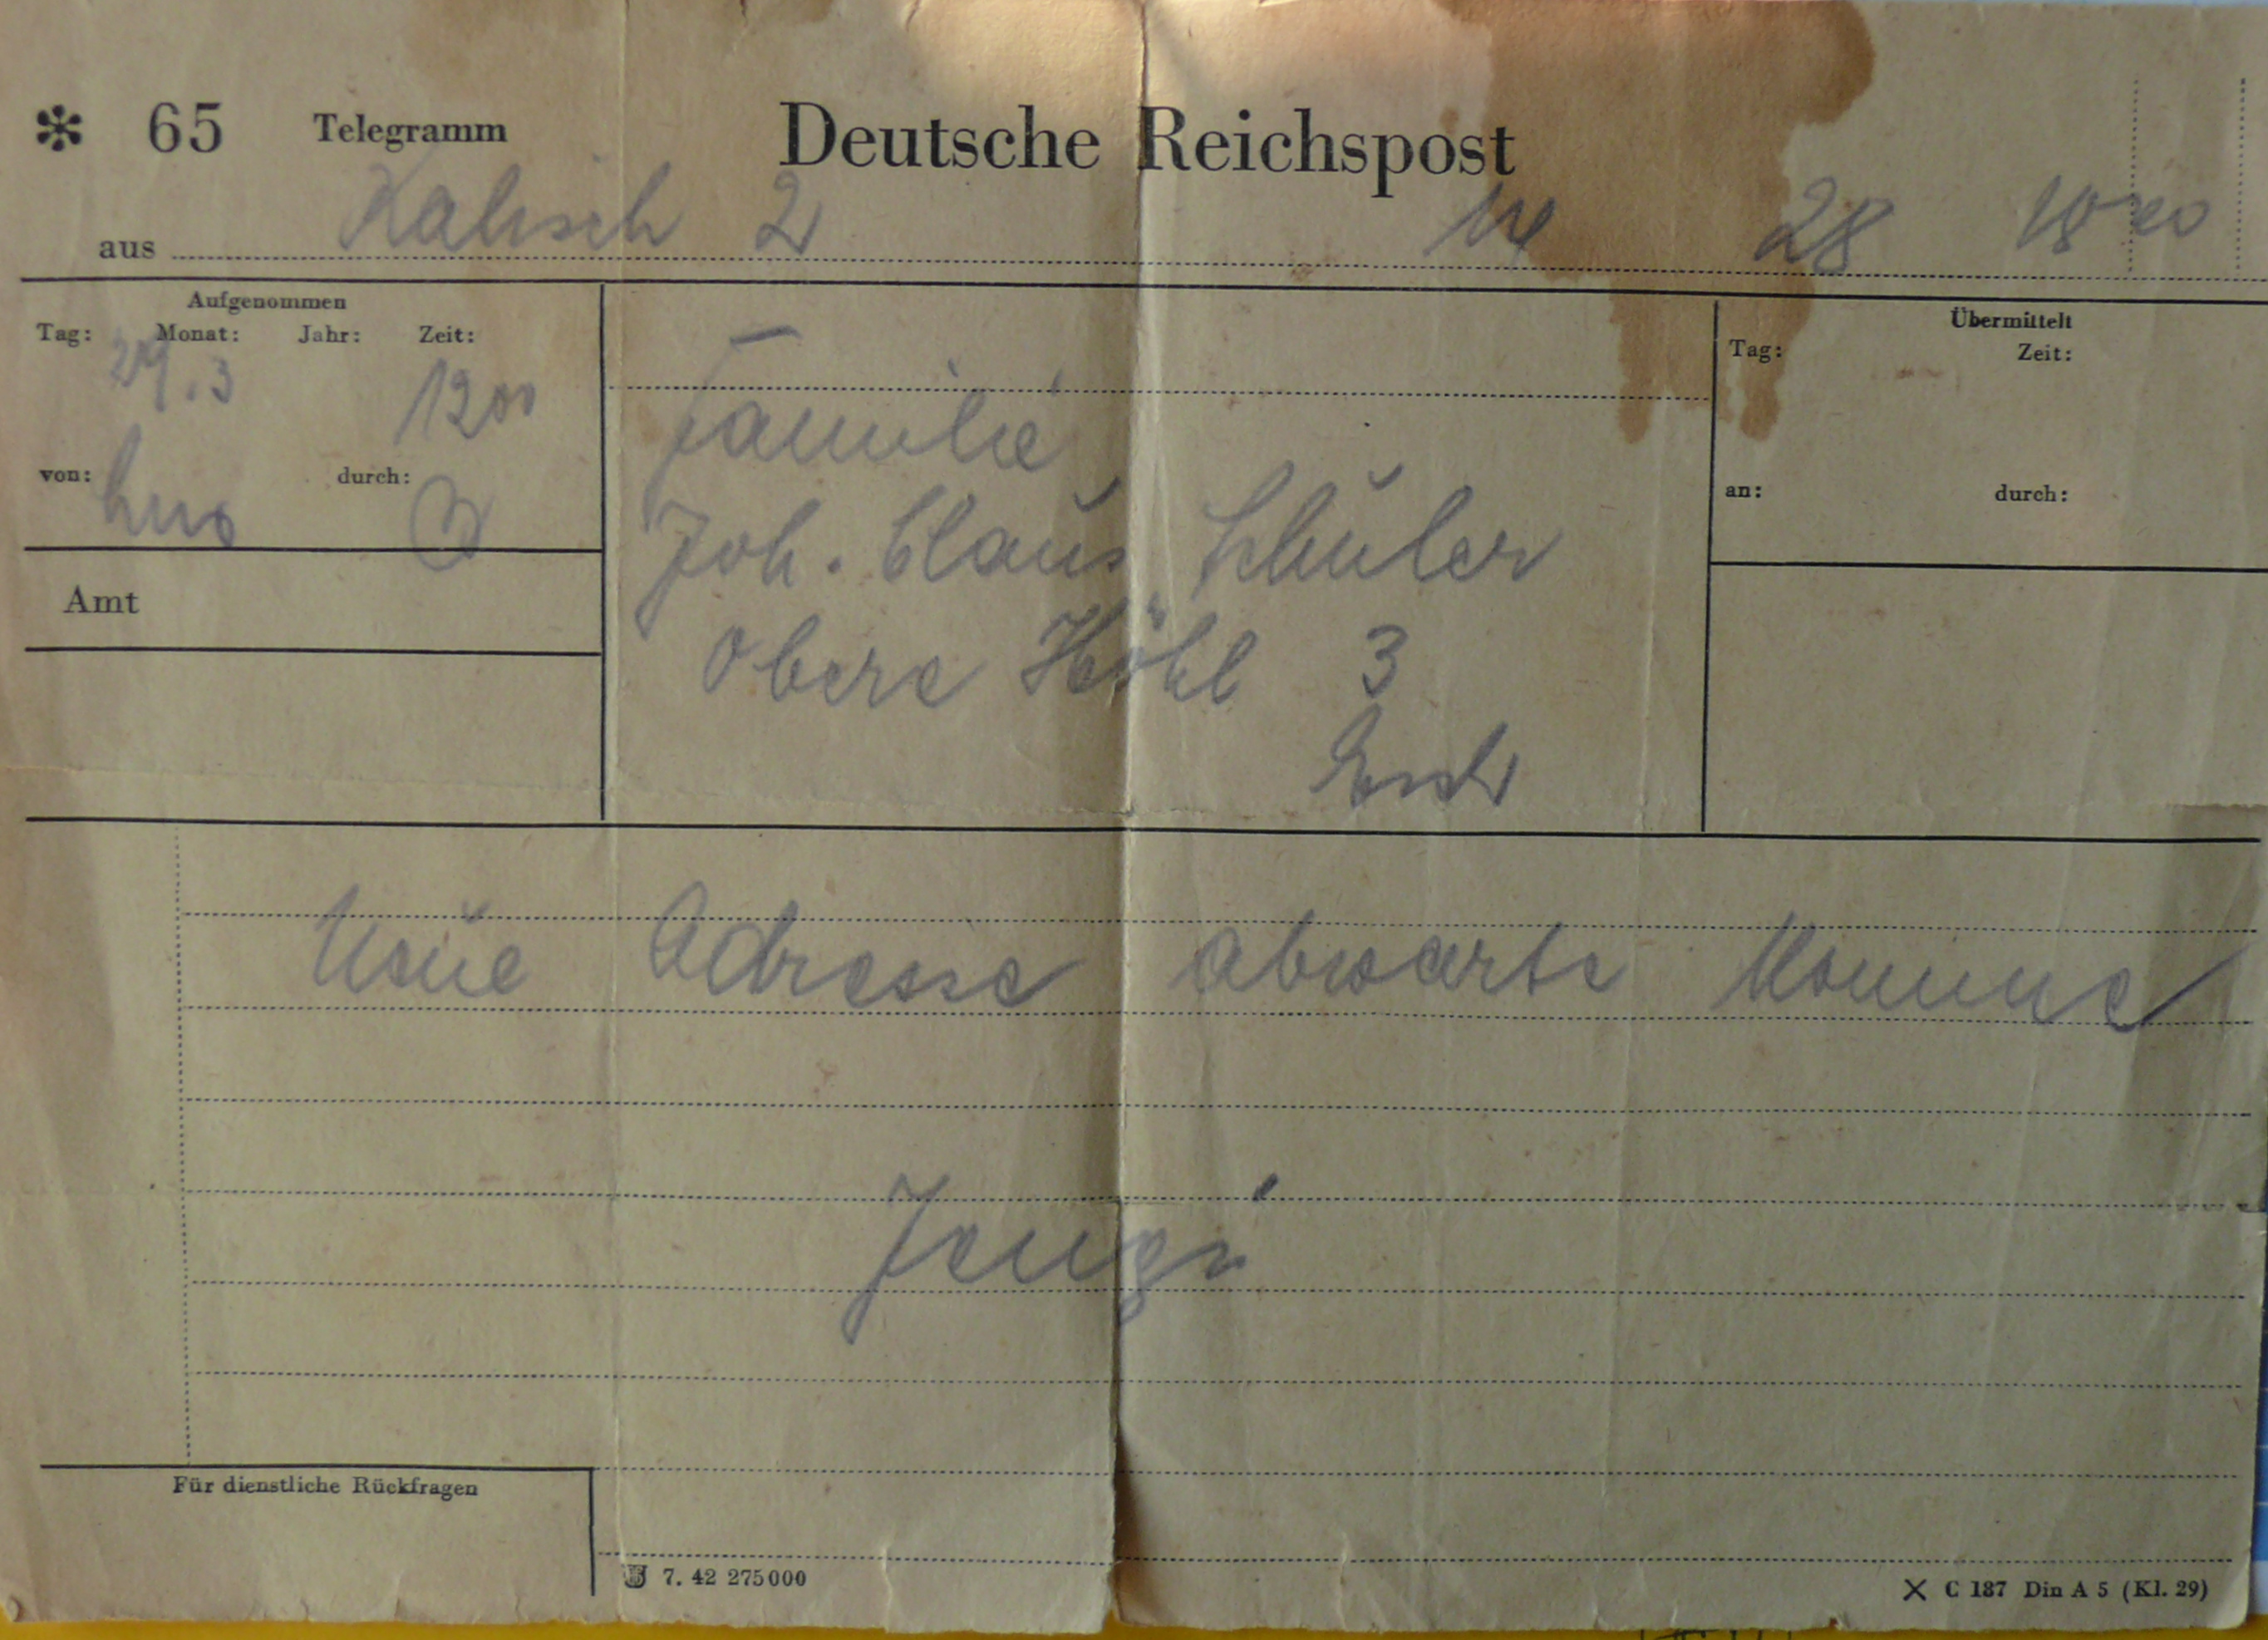 * 65 Telegramm Deutsche Reichspost
aus Kalisch 2 14 28 18 20
Aufgenommen
Tag: Monat: Jahr: Zeit:
29.3 12 00
von: durch:
Amt
Familie
Joh. Claus Schüler
Obere Höhl 3
Übermittelt
Tag: Zeit:
an: durch:
Neue Adresse abwarte komme
Jengi
Für dienstliche Rückfragen
7. 42 275000
X C 187 Din A 5 (Kl. 29)